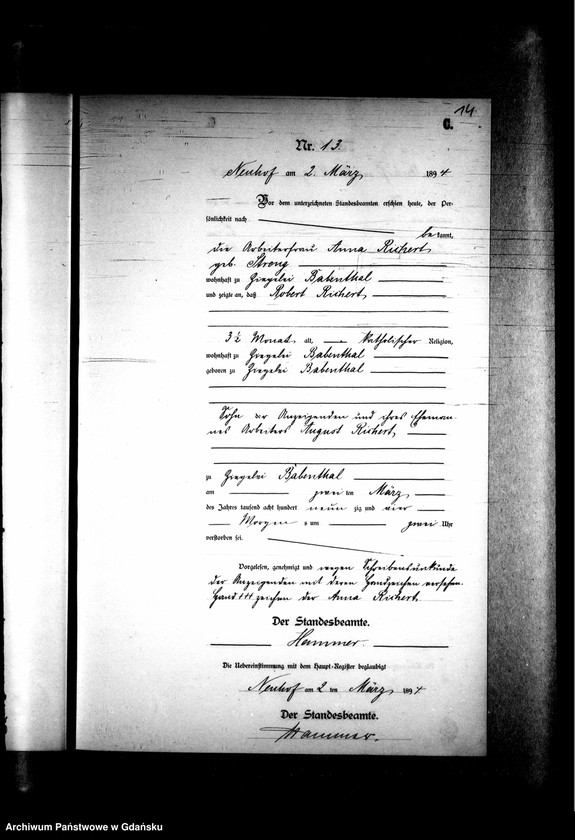 14
C.
Nr. 13.
Neuhof am 2. März 1894
Vor dem unterzeichneten Standesbeamten erschien heute, der Per-
sönlichkeit nach
bekannt,
die Arbeiterfrau Anna Richert,
geb. Strong
wohnhaft zu Ziegelei Babenthal
und zeigte an, daß Robert Richert,
3½ Monat alt, katholischer Religion,
wohnhaft zu Ziegelei Babenthal
geboren zu Ziegelei Babenthal
Sohn der Anzeigenden und ihres Eheman-
nes Arbeiters August Richert,
zu Ziegelei Babenthal
am zweiten März
des Jahres tausend acht hundert neunzig und vier
Morgens um zwei Uhr
verstorben sei.
Vorgelesen, genehmigt und wegen Schreibensunkunde
der Anzeigenden mit deren Handzeichen versehen.
Hand +++ zeichen der Anna Richert.
Der Standesbeamte.
Hammer.
Die Uebereinstimmung mit dem Haupt-Register beglaubigt
Neuhof am 2 ten März 1894
Der Standesbeamte.
Hammer.
Archiwum Państwowe w Gdańsku